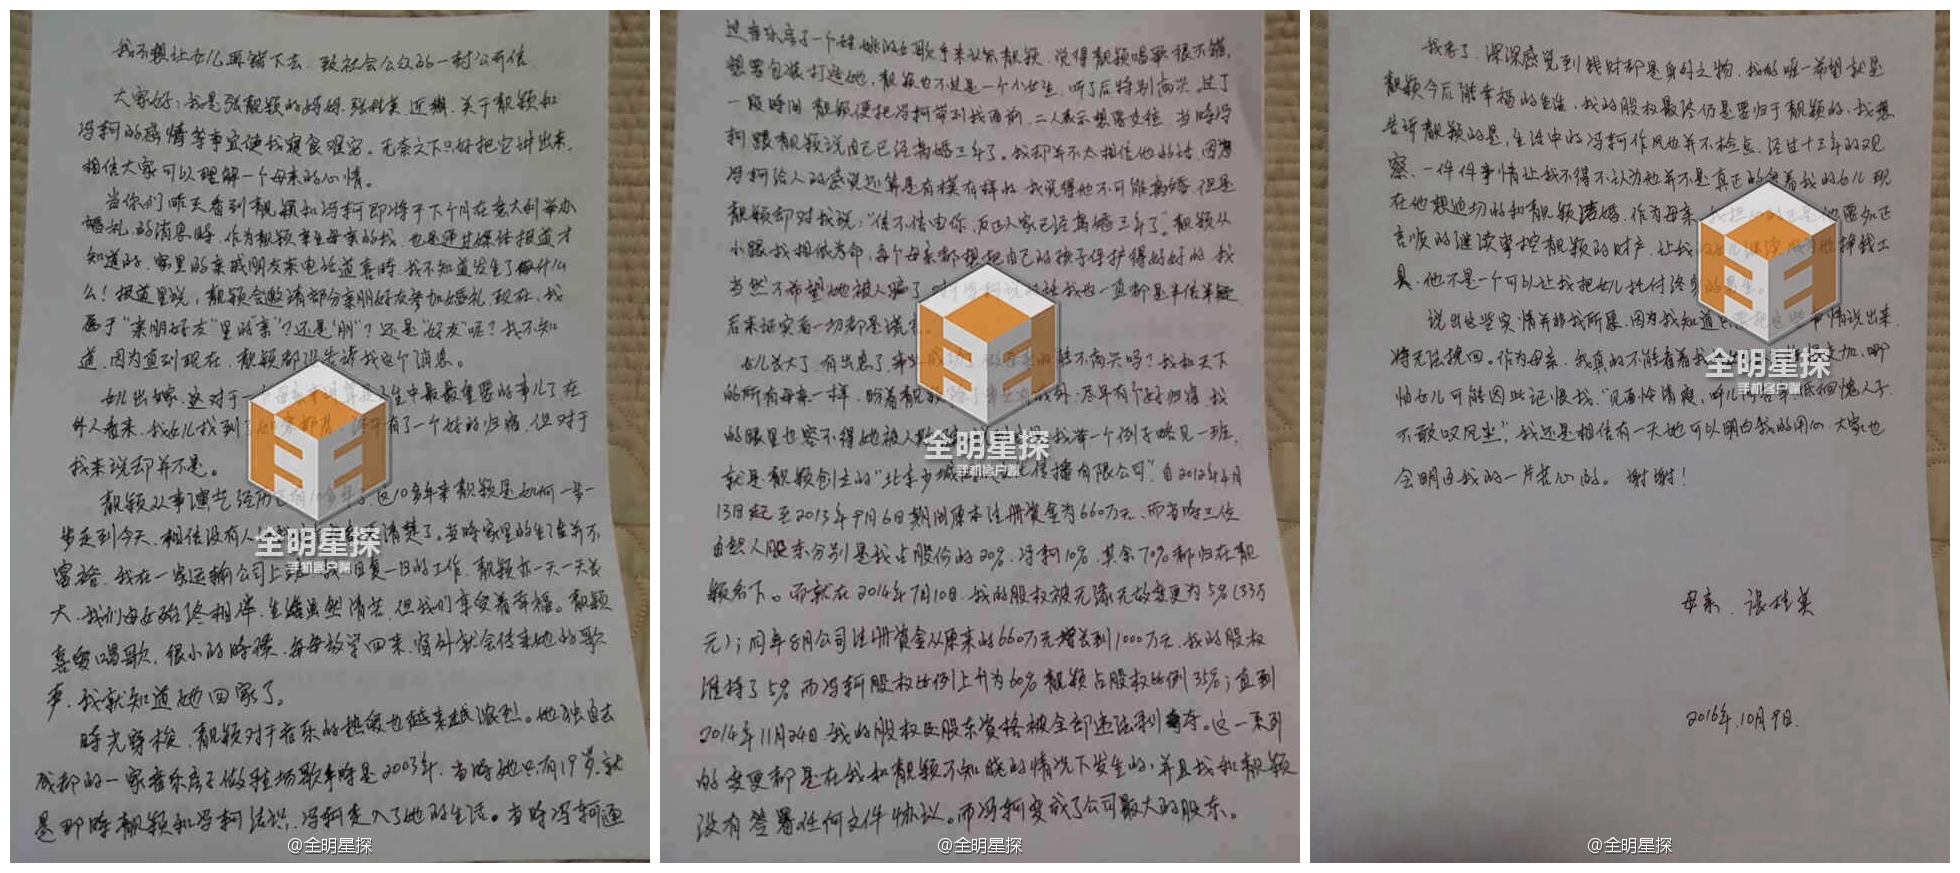 我不想让女儿再错下去,致社会公众的一封公开信
大家好,我是张靓颖的妈妈,张桂英.近期,关于靓颖和
冯轲的婚情等事宜使我寝食难安。无奈之下只好把它讲出来,
相信大家可以理解一个母亲的心情。
当你们昨天看到靓颖和冯轲即将于下个月在意大利举办
婚礼的消息时,作为靓颖亲生母亲的我,也是通过媒体报道才
知道的.家里的亲戚朋友来电话道喜时,我不知道发生了什么
么!报道里说,靓颖会邀请部分亲朋好友参加婚礼.现在,我
属于“亲朋好友”里的“亲”?还是“朋”?还是“好友”呢?我不知
道,因为直到现在,靓颖都没告诉我这个消息。
女儿出嫁,这对于一个母亲来说算是人生中最最重要的事儿了.在
外人看来,我女儿找到了 终于有了一个好的归宿,但对于
我来说却并不是。
靓颖从事演艺经历已有10多年了.这10多年来靓颖是如何一步一
步走到今天,相信没有人 清楚了。当时家里的生活并不
富裕,我在一家运输公司上班,我日复一日的工作,靓颖亦一天一天长
大.我们母女始终相伴,生活虽然清苦,但我们享受着幸福。靓颖
喜爱唱歌,很小的时候,每每放学回来,窗外就会传来她的歌
声,我就知道她回家了。
时光穿梭,靓颖对于音乐的热爱也越来越浓烈。她独自去
成都的一家音乐房子做驻场歌手时是2003年.当时她只有19岁,就
是那时靓颖和冯轲结识,冯轲走入了她的生活。当时冯轲通
过音乐房子一个姓姚的女歌手来认识靓颖,说得靓颖唱歌很不错,
想要包装打造她,靓颖也不过是一个小女生,听了后特别高兴.过了
一段时间,靓颖便把冯轲带到我面前,二人表示想要交往,当时冯
轲跟靓颖说自己已经离婚三年了。我却并不太相信他的话,因为
冯轲给人的感觉还算是有模有样的,我觉得他不可能离婚.但是
靓颖却对我说:“信不信由你,反正人家已经离婚三年了”。靓颖从
小跟我相依为命,每个母亲都想把自己的孩子保护得好好的,我
当然不希望她被人骗了.对于冯轲说的话我也一直都是半信半疑.
后来证实着一切都是谎言
女儿长大了,有出息了,事业成功了,做母亲的能不高兴吗?我和天下
的所有母亲一样,盼着靓颖除了事业有成外,尽早有个好归宿,我
的眼里也容不得她被人欺 我举一个例子略见一班,
就是靓颖创立的“北京少城 传播有限公司”.自2012年4月
13日起至2013年9月6日期间原本注册资金为660万元,而当时三位
自然人股东分别是我占股份的20%,冯轲10%,其余70%都归在靓
颖名下。而就在2014年7月10日,我的股权被无缘无故变更为5%(33万
元);同年8月公司注册资金从原来的660万元增长到1000万元.我的股权
维持了5%而冯轲股权比例上升为60%靓颖占股权比例35%;直到
2014年11月24日我的股权及股东资格被全部违法剥夺。这一系列
的变更都是在我和靓颖不知晓的情况下发生的,并且我和靓颖
没有签署任何文件协议。而冯轲变成了公司最大的股东。
我老了,深深感觉到钱财都是身外之物.我的唯一希望就是
靓颖今后能幸福的生活,我的股权最终仍是要归于靓颖的,我想
告诉靓颖的是,生活中的冯轲作风也并不检点.经过十三年的观
察,一件件事情让我不得不认为他并不是真正的爱着我的女儿.现
在他想迫切的和靓颖结婚,作为母亲,我担心的正是他要名正
言顺的继续掌控靓颖的财产,让我的女儿继续成为他挣钱工
具.他不是一个可以让我把女儿托付终身的男生。
说出这些实情并非我所愿,因为我知道 把这些事情说出来,
将无法挽回。作为母亲,我真的不能看着我 ,哪
怕女儿可能因此记恨我,“见面怜清瘦,呼儿问苦辛.低徊愧人子,
不敢叹风尘”.我还是相信有一天她可以明白我的用心.大家也
会明白我的一片苦心的。谢谢!
母亲.张桂英
2016年.10月9日.
全明星探
手机客户端
全明星探
手机客户端
全明星探
手机客户端
@全明星探
@全明星探
@全明星探